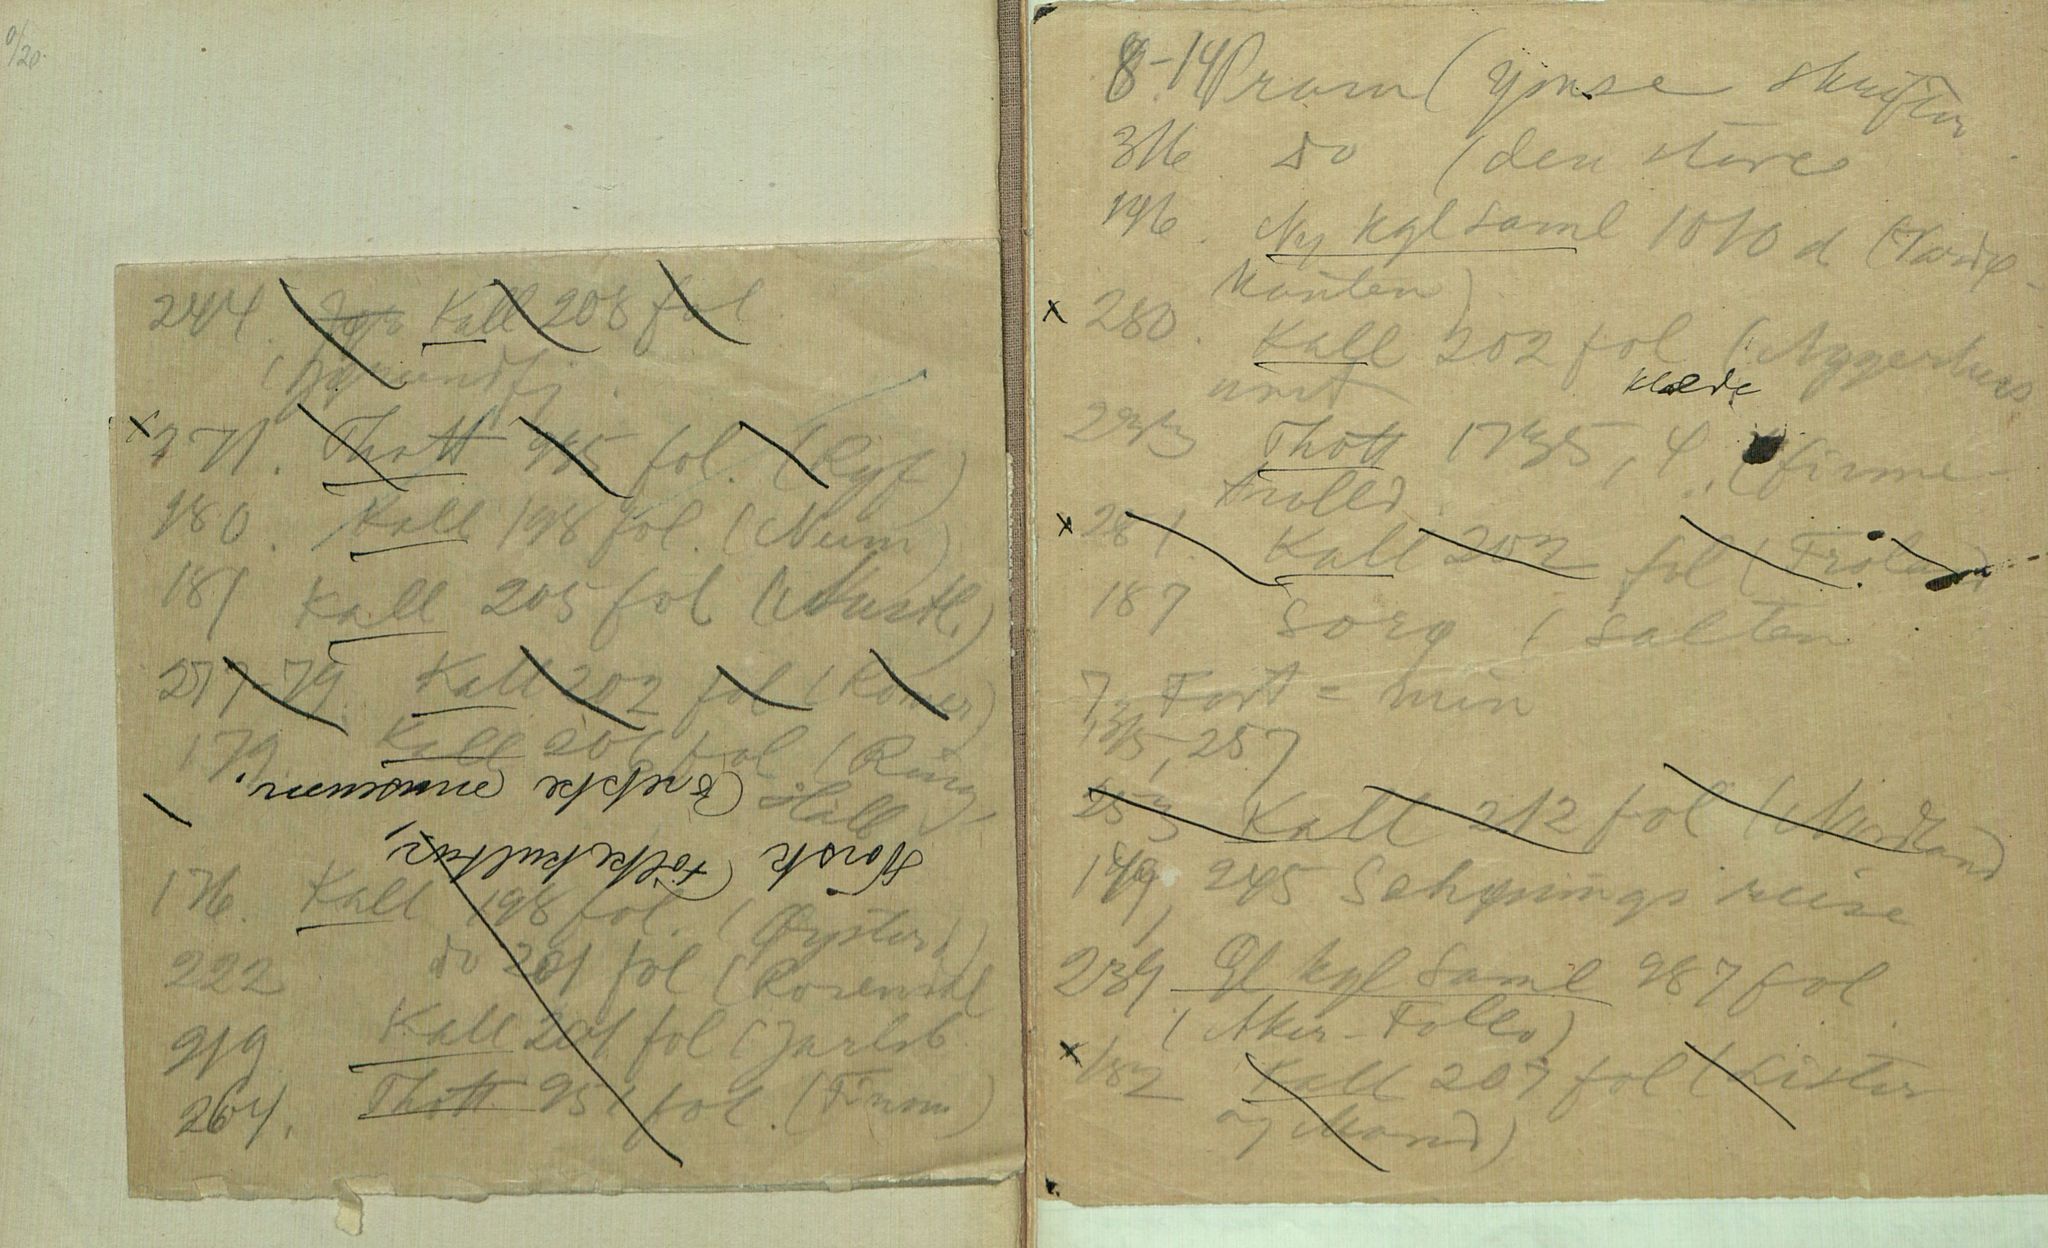 0/20
244. Kall 208 fol
x 271. Thott 985 fol. (Ryf)
180. Kall 198 fol. (Num)
181 Kall 205 fol (Austl.)
277-79 Kall 202 fol (Romer)
179. Kall fol (Ring-
Brekke museum.
Hall
Norsk Folkekultur,
176. Kall 198 fol. (Øysterd)
222 do 201 fol (Rosendal
219 Kall 201 fol (Jarlsb
264. Thott 951 fol. (Finnm)
8-14 Pram (ymse skrifter
316 do (den store
146. Ny kgl saml 1010 d (Nord-
Manten)
x 280. Kall 202 fol (Aggerhus
amt
klæde
233 Thott 1735, 4. (finne-
trolld.
x 281. Kall 202 fol (Froland
187 Sorg (Salten
7. Fort = min
135, 257
253 Kall 212 fol (Nordland
149, 245 Schønings reise
239 Gl kgl Saml 987 fol
(Aker-Follo)
x 182 Kall 207 fol (Lister
og Mand)